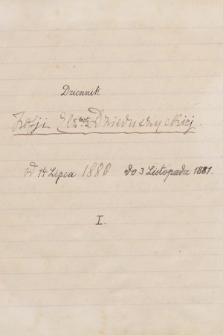 Dziennik
Zofji z Hr. Dzieduszyckiej.
Od 14 Lipca 1880 do 3 Listopada 1881.
I.